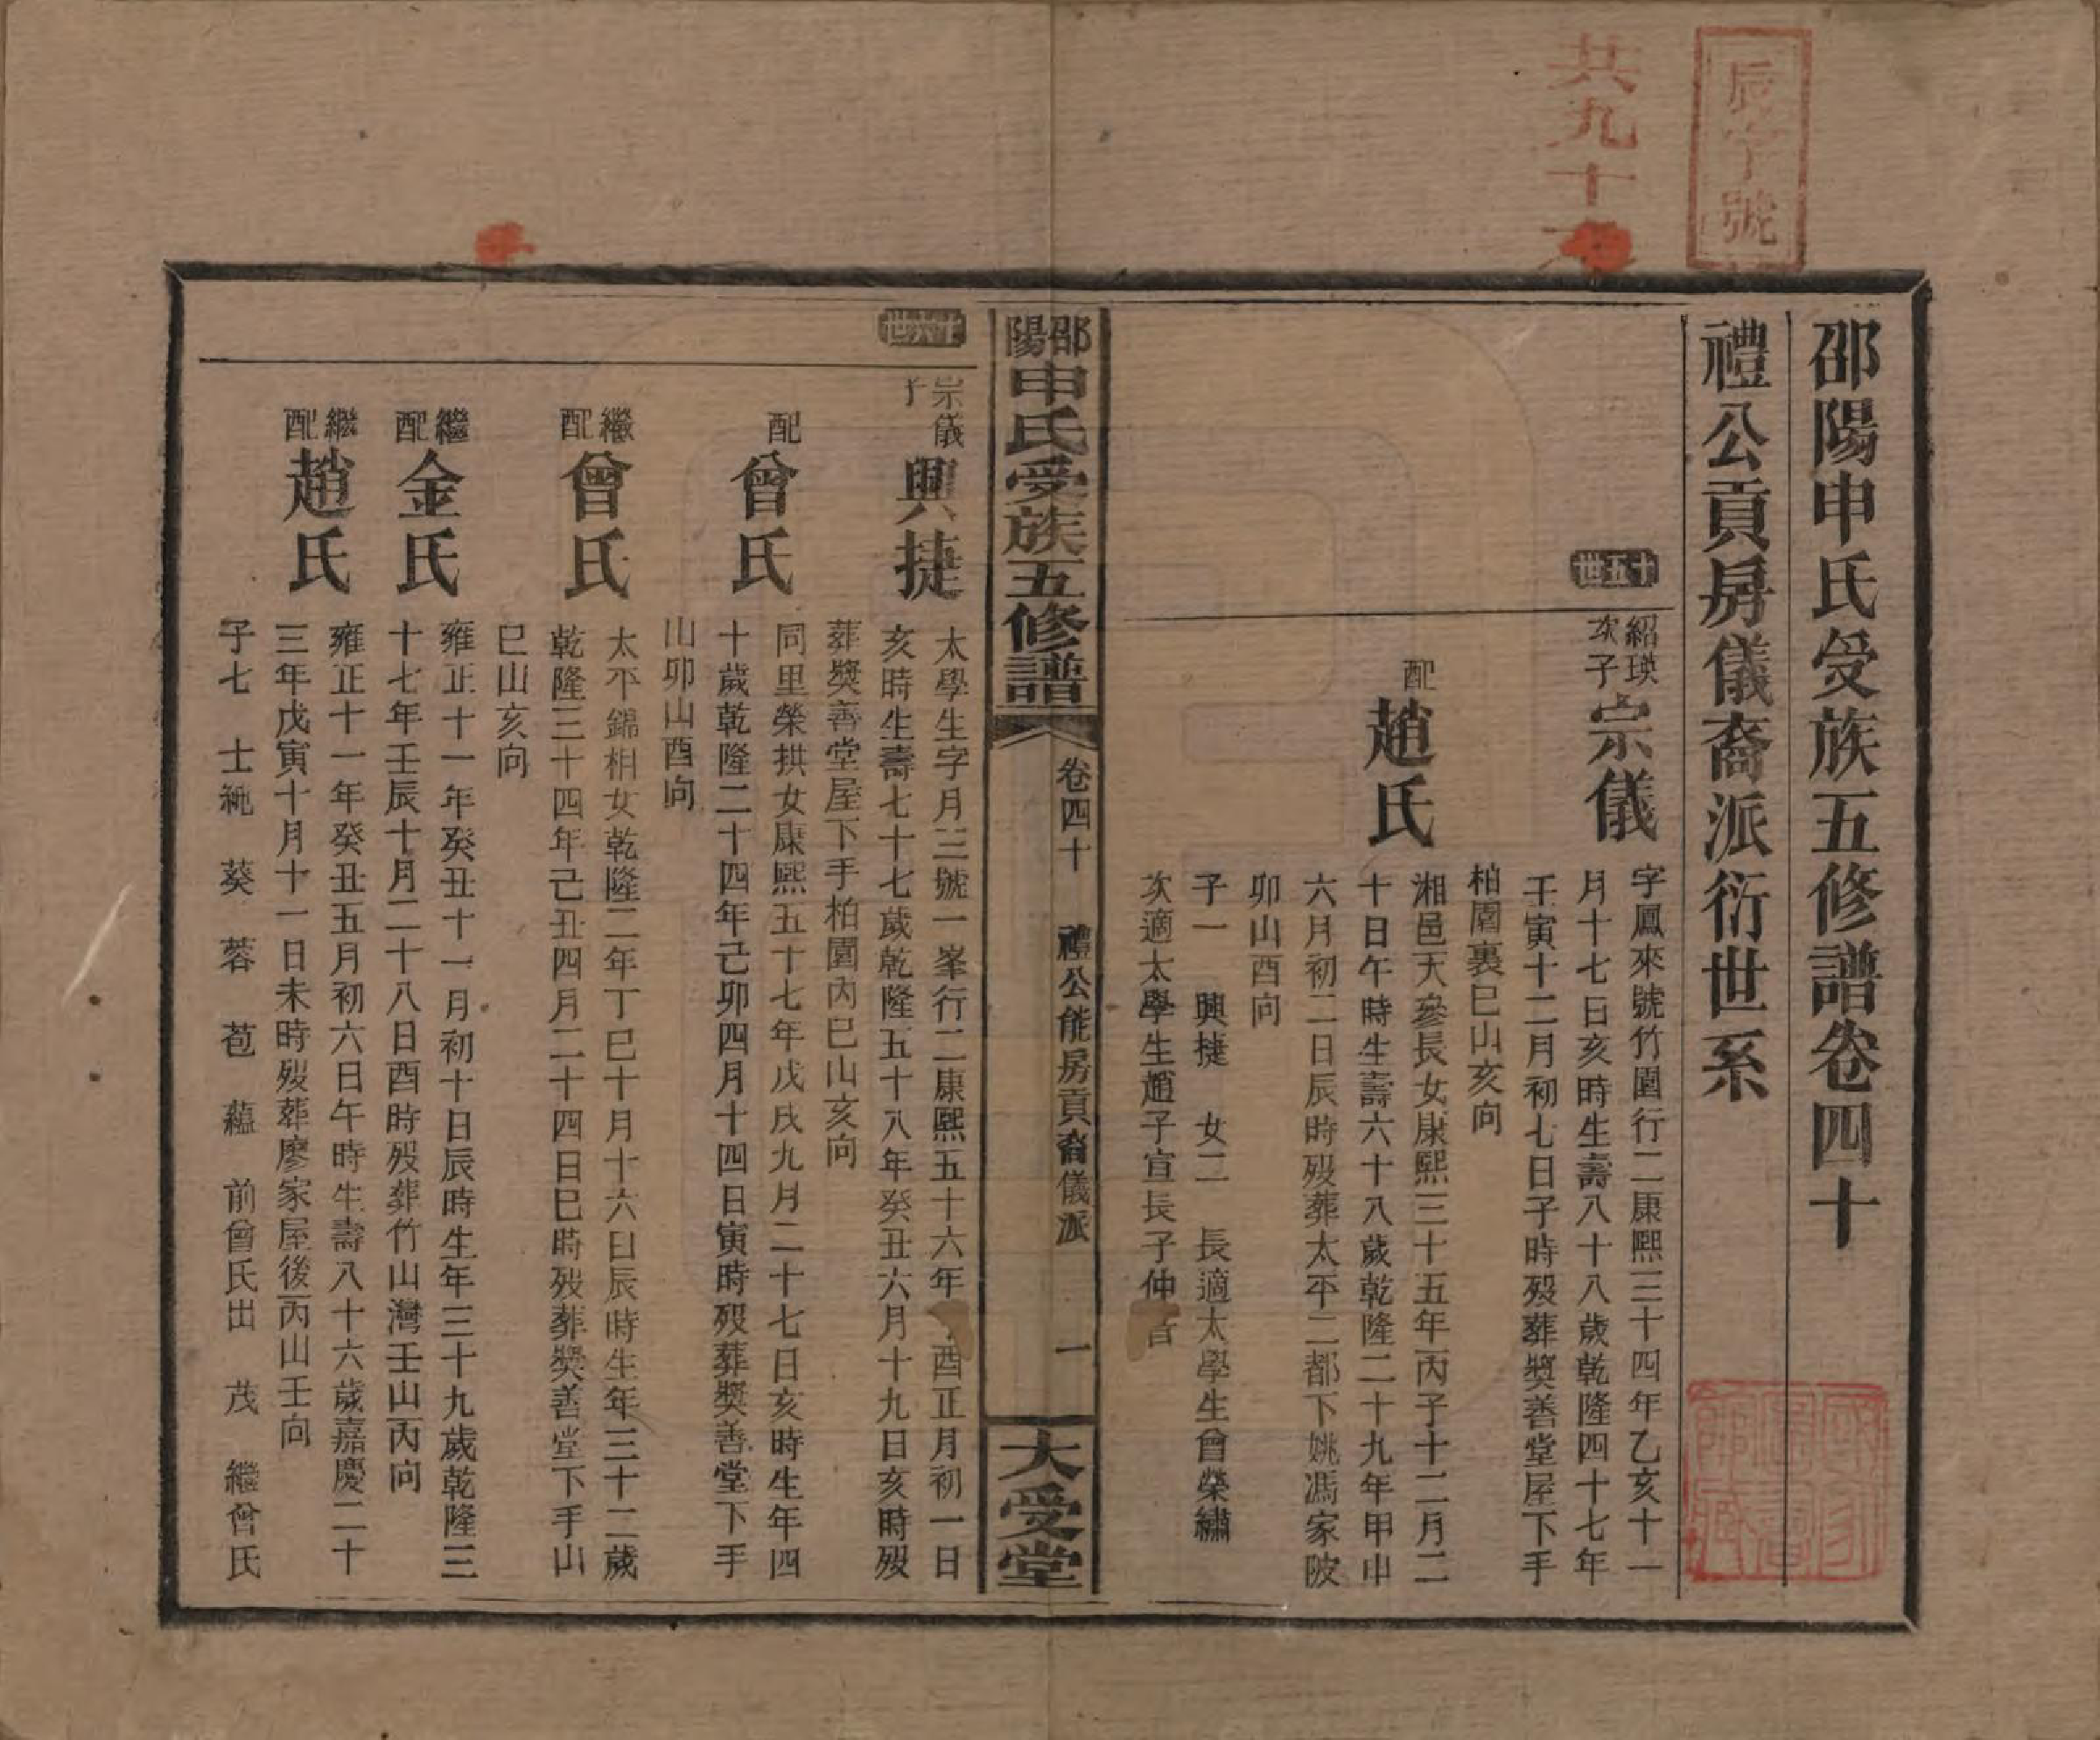 辰字號
共九十
邵陽申氏受族五修譜卷四十
禮公貢房儀裔派衍世系
十五世
紹瑛
次子
宗儀
字鳳來號竹園行二康熙三十四年乙亥十一
月十七日亥時生壽八十八歲乾隆四十七年
壬寅十二月初七日子時歿葬獎善堂屋下手
柏園裏巳山亥向
配
趙氏
湘邑天參長女康熙三十五年丙子十二月二
十日午時生壽六十八歲乾隆二十九年甲申
六月初二日辰時歿葬太平二都下姚馮家陂
卯山酉向
子一 興捷 女二 長適太學生曾榮繡
次適太學生趙子宣長子仲
邵陽申氏受族五修譜
卷四十 禮公能房貢裔儀派 一
大受堂
十六世
宗儀
子
興捷
太學生字月三號一峯行二康熙五十六年 酉正月初一日
亥時生壽七十七歲乾隆五十八年癸丑六月十九日亥時歿
葬獎善堂屋下手柏園內巳山亥向
配
曾氏
同里榮拱女康熙五十七年戊戌九月二十七日亥時生年四
十歲乾隆二十四年己卯四月十四日寅時歿葬獎善堂下手
山卯山酉向
繼
配
曾氏
太平錦相女乾隆二年丁巳十月十六日辰時生年三十二歲
乾隆三十四年己丑四月二十四日巳時歿葬獎善堂下手山
巳山亥向
繼
配
金氏
雍正十一年癸丑十一月初十日辰時生年三十九歲乾隆三
十七年壬辰十月二十八日酉時歿葬竹山灣壬山丙向
繼
配
趙氏
雍正十一年癸丑五月初六日午時生壽八十六歲嘉慶二十
三年戊寅十月十一日未時歿葬廖家屋後丙山壬向
子七 士純 葵 蓉 苞 蘊 前曾氏出 茂 繼曾氏